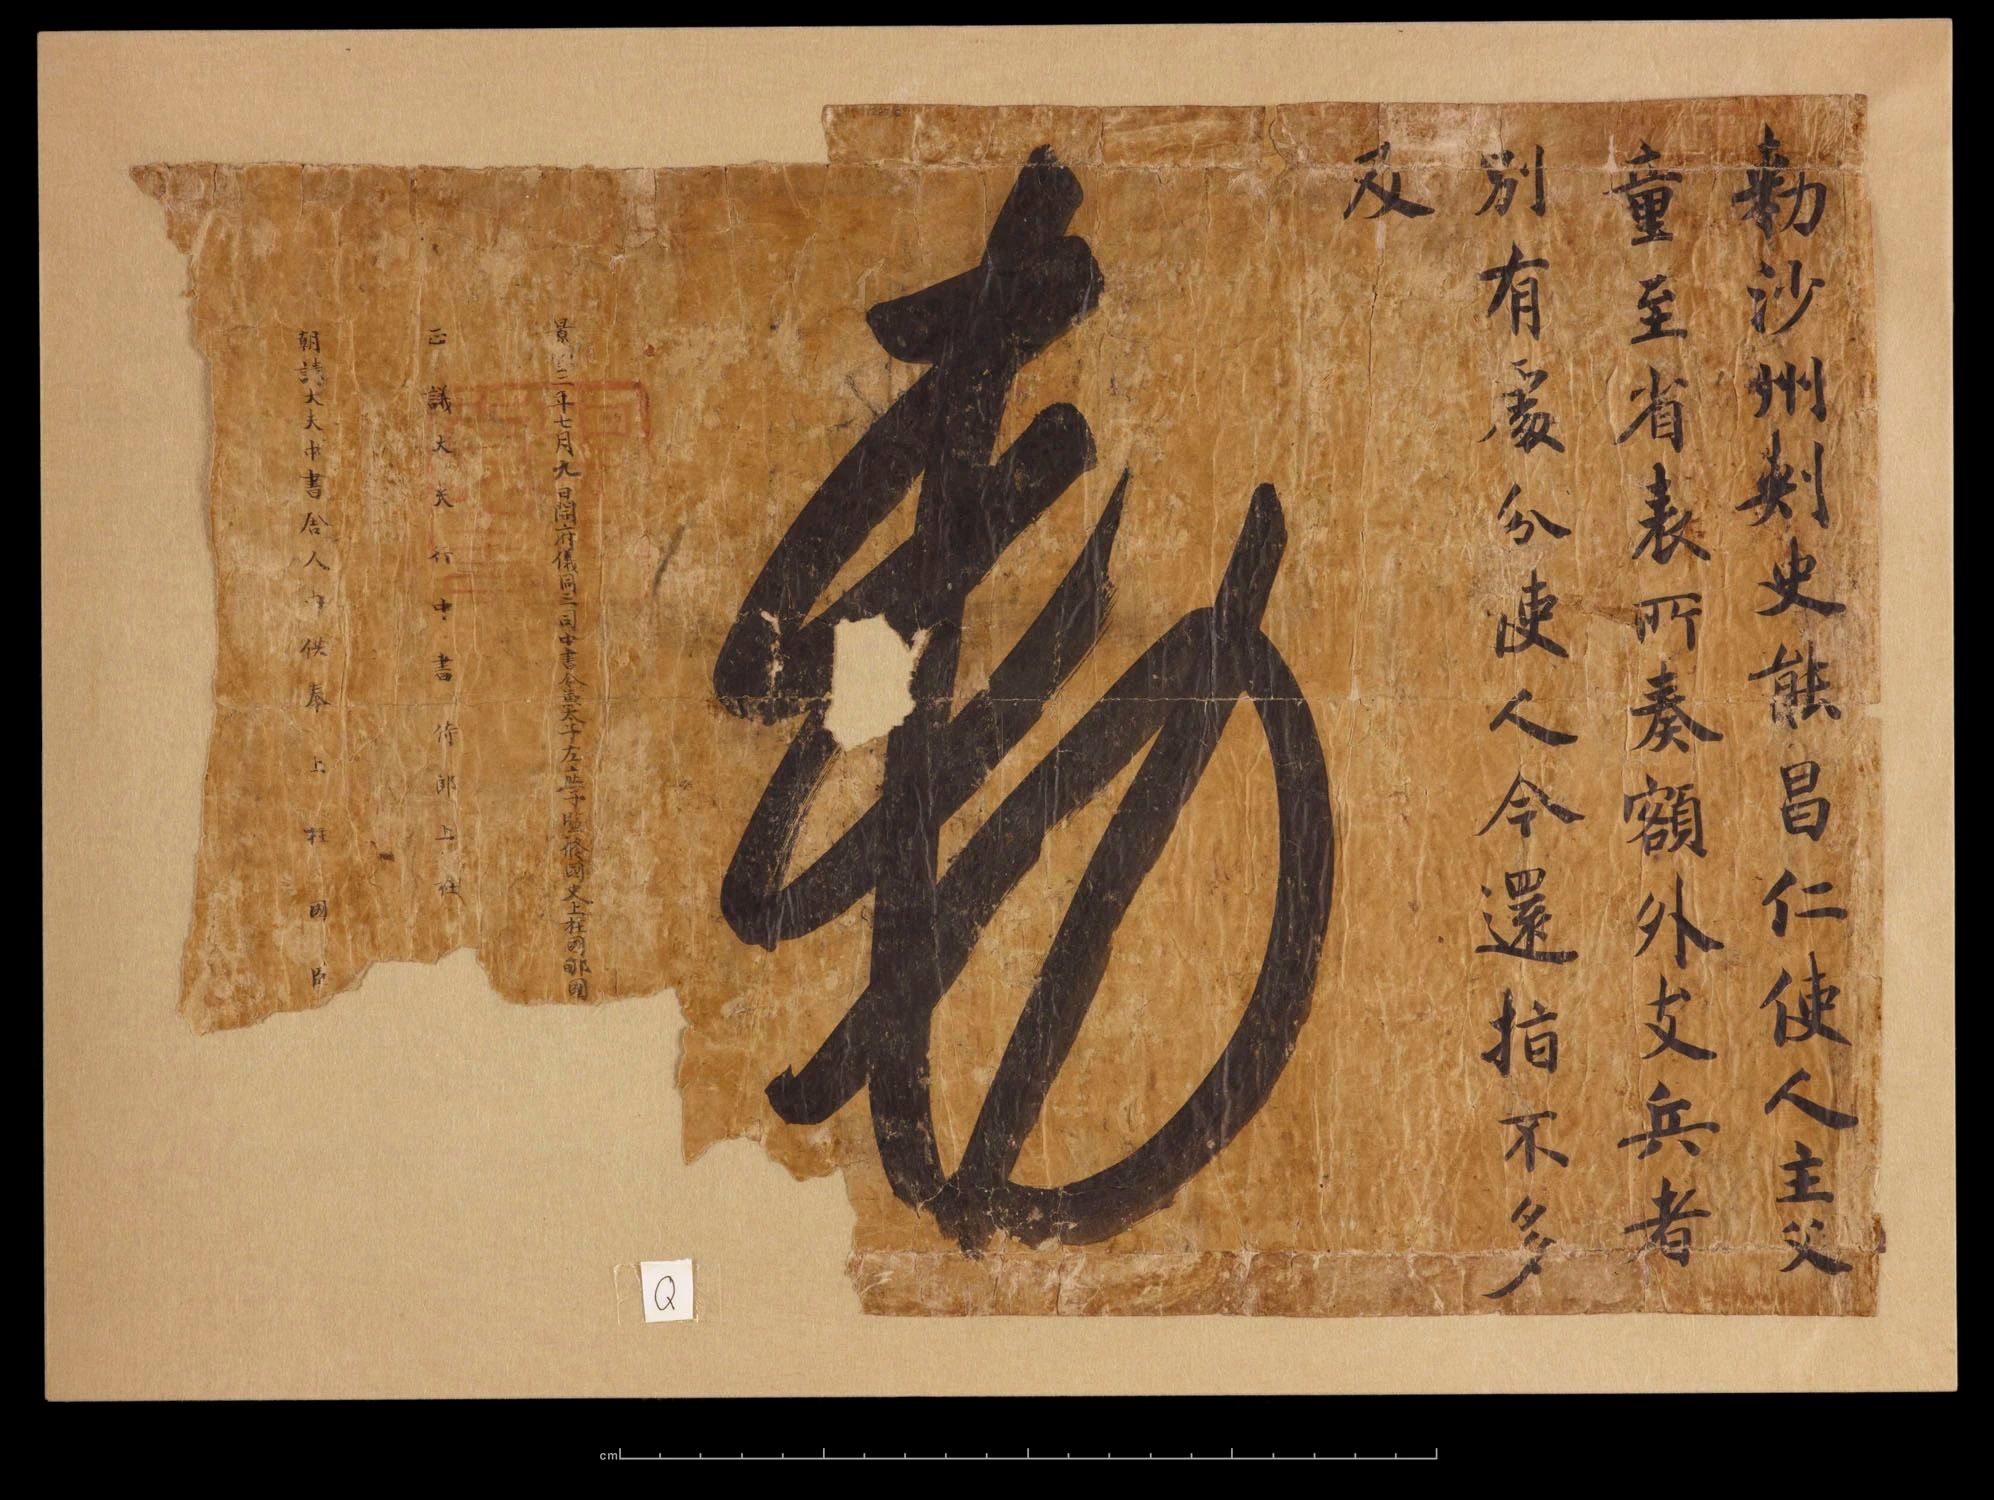 勅沙州刺史能昌仁使人主父
童至省表所奏額外支兵者
別有處分使人今還指不多
及
勅
景雲二年七月九日開府儀同三司中書令兼太子左庶子監修國史上柱國郇國
正議大夫行中書侍郎上柱
朝請大夫中書舍人內供奉上柱國臣
Q
cm